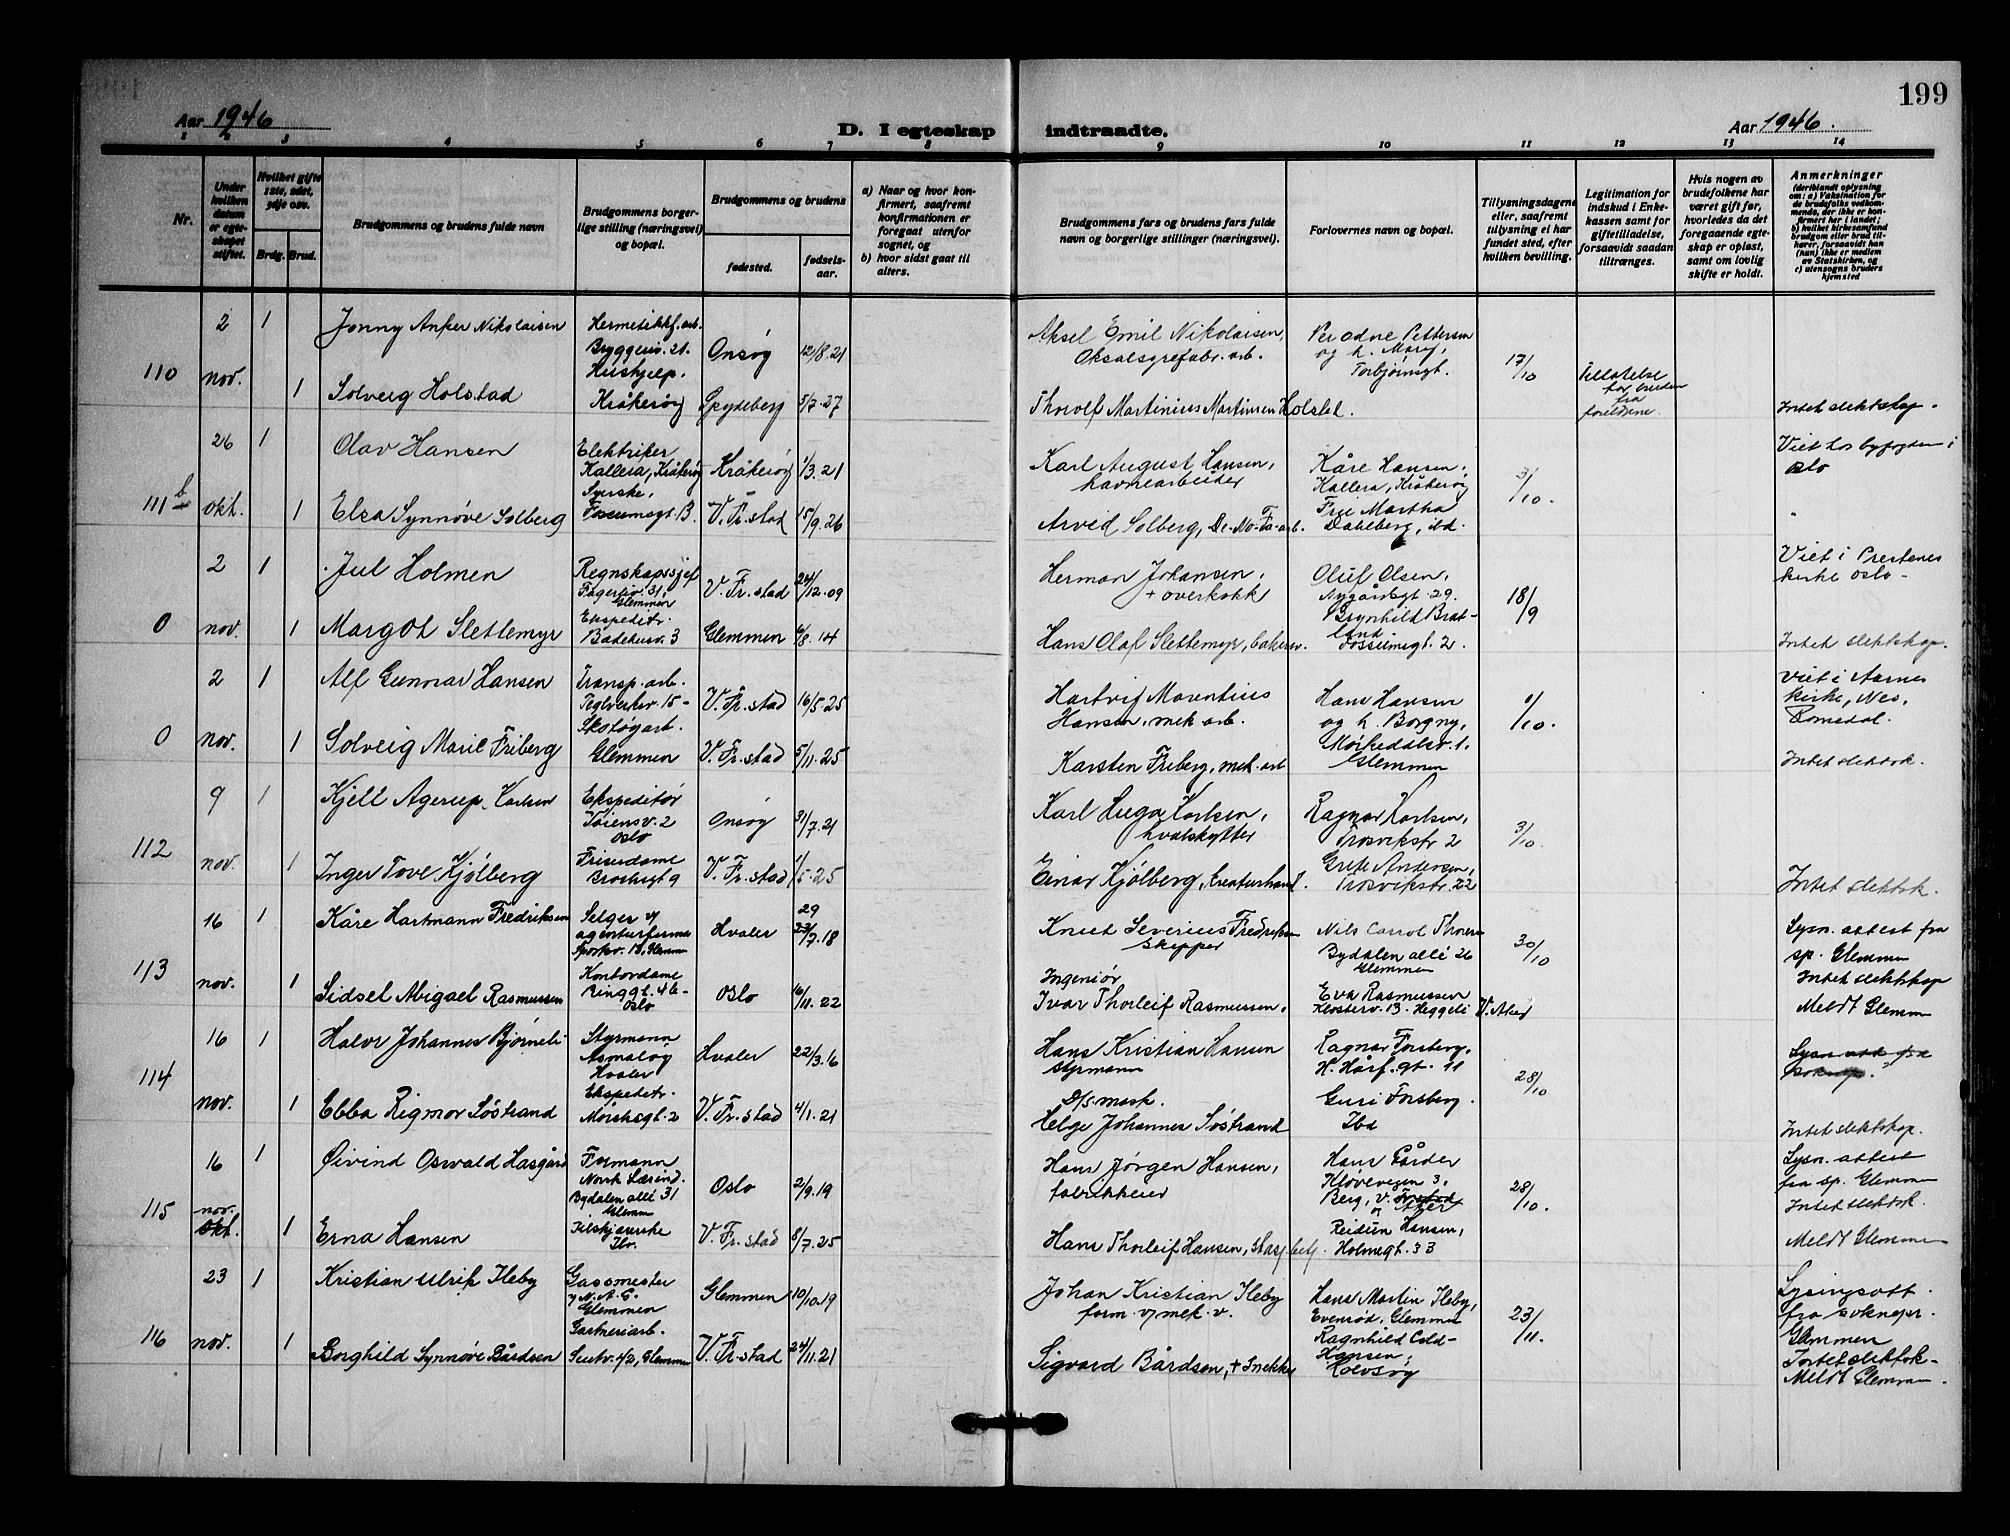 199
Aar 1946
D. I egteskap indtraadte.
Aar 1946.
1 2 3 4 5 6 7 8 9 10 11 12 13 14
Nr.
Under hvilken datum er egteskapet stiftet.
Hvilket gifte 1ste, 2det, 3dje osv.
Brdg. Brud.
Brudgommens og brudens fulde navn
Brudgommens borgerlige stilling (næringsvei) og bopæl.
Brudgommens og brudens
fødested.
fødselsaar.
a) Naar og hvor konfirmert, saafremt konfirmationen er foregaat utenfor sognet, og
b) hvor sidst gaat til alters.
Brudgommens fars og brudens fars fulde navn og borgerlige stillinger (næringsvei).
Forlovernes navn og bopæl.
Tillysningsdagene eller, saafremt tillysning ei har fundet sted, efter hvilken bevilling.
Legitimation for indskud i Enkekassen samt for giftetilladelse, forsaavidt saadan tiltrænges.
Hvis nogen av brudefolkene har været gift før, hvorledes da det foregaaende egteskap er opløst, samt om lovlig skifte er holdt.
Anmerkninger
(deriblandt oplysning om: a) Vaksination for de brudefolks vedkommende, der ikke er konfirmert her i landet; b) hvilket kirkesamfund brudgom eller brud tilhører, forsaavidt han (hun) ikke er medlem av Statskirken, og c) utensogns bruders hjemsted
110
2 nov.
1 Jonny Anker Nikolaisen
Hermetikkf. arb.
Bryggeriv. 21.
Onsøy 12/8.21
Aksel Emil Nikolaisen,
Oksalsyrefabr. arb.
Per Odne Pettersen
og h. Mary,
Torbjørnsgt.
17/10
Tillatelse
for bruden
fra
foreldrene.
1 Solveig Holstad
Hushjelp.
Kråkerøy
Spydeberg 5/7.27
Thorolf Martinius Martinsen Holstad.
Intet slektskap.
111 b
26 okt.
1 Olav Hansen
Elektriker
Kallera, Kråkerøy
Kråkerøy 1/3.21
Karl August Hansen,
havnearbeider
Kåre Hansen,
Kallera, Kråkerøy
3/10.
Viet hos byfogden i
Oslo
1 Elsa Synnøve Solberg
Syerske,
Fossumsgt. 13.
V. Fr.stad 15/9.26
Arvid Solberg, De-No-Fa-arb.
Frue Martha
Dahlberg, ibd.
"
0
2 nov.
1 Jul Holmen
Regnskapssjef
Fagerliv. 31,
Glemmen
V. Fr.stad 24/12.09
Herman Johansen,
+ overkokk
Oluf Olsen,
Nygårdsgt. 29.
18/9
Viet i Prestenes
kirke Oslo -
1 Margot Slettemyr
Ekspeditr.
Badehusv. 3
Glemmen 6/8.14
Hans Olaf Slettemyr, bakersv.
Brynhild Bratland
Fossumsgt. 2.
Intet slektskap.
0
2 nov.
1 Alf Gunnar Hansen
Transp. arb.
Teglverksv. 15-
V. Fr.stad 16/5.25
Hartvif Mauritius
Hansen, mek arb.
Hans Hansen
og h. Borgny,
Mørkedalsv. 1.
Glemmen
1/10.
Viet i Aarnes
kirke, Nes,
Romedal.
1 Solveig Marie Friberg
Skotøyarb.
Glemmen
V. Fr.stad 5/11.25
Karsten Friberg, mek. arb
Intet slektsk.
112
9 nov.
1 Kjell Agerup Karlsen
Ekspeditør
Tøiensv. 2
Oslo
Onsøy 31/7.21
Karl Hugo Karlsen,
hvalskytter
Ragnar Karlsen,
Trosvikstr 2
3/10.
1 Inger Tove Kjølberg
Frisørdame
Brochsgt 9
V. Fr.stad 1/5.25
Einar Kjølberg, kreaturhand.
Grete Andersen,
Trosvikstr. 22
Intet slektsk.
113
16 nov.
1 Kåre Hartmann Fredriksen
Selger v/
agenturfirma
Sportsv. 18, Glemmen
Hvaler 29 23/7.18
Knut Severius Fredriksen
skipper
Nils Carrol Thoresen
Bydalen allé 26
Glemmen
30/10
Lysn. attest fra
sp. Glemmen
Intet slektskap
1 Sidsel Abigael Rasmussen
Kontordame
Ringgt. 4b-
Oslo
Oslo 16/11.22
Ingeniør
Ivar Thorleif Rasmussen,
Eva Rasmussen
Klosterv. 13. Heggeli V. Aker
Meldt Glemmen
114
16 nov.
1 Halvor Johannes Bjørneli
Styrmann
Asmaløy
Hvaler
Hvaler 22/3.16
Hans Kristian Hansen
styrmann
Ragnar Forsberg,
H. Hårf. gt. 11
28/10
Lysn att fra
soknepr.
1 Ebba Rigmor Søstrand
Ekspeditr.
Mørchsgt. 2
V. Fr.stad 4/1.21
D/S mask.
Helge Johannes Søstrand
Guri Forsberg.
Ibd
Intet slektskap.
115
16 nov. okt.
1 Øivind Oswald Hasgård
Formann
Norsk Lærind.
Bydalen allé 31
Glemm
Oslo 2/9.19
Hans Jørgen Hansen,
fabrikkeier
Hans Gårder
Kløvevegen 3,
Berg, v.
28/10.
Lysn. attest
fra sp. Glemmen
Intet slektsk.
1 Erna Hansen
Tilskjærerske
Ibr.
V. Fr.stad 8/7.25
Hans Thorleif Hansen, stasj.betj.
Reidun Hansen,
Holmegt. 33
Meldt Glemmen
116
23 nov.
1 Kristian Ulrik Ileby
Gassmester
v/ N. A. G.
Glemmen
Glemmen 10/10.19
Johan Kristian Ileby
form. v/ mek. v.
Hans Martin Ileby,
Evenrød, Glemmen
23/11.
Lysingsatt.
fra soknepr.
Glemmen
1 Borghild Synnøve Bårdsen
Gartneriarb.
Smutv. 4/2, Glemmen
V. Fr.stad 24/11.21
Sigvard Bårdsen, + Snekker
Ragnhild
Hansen,
Intet slektsk-
Meldt Glemmen.